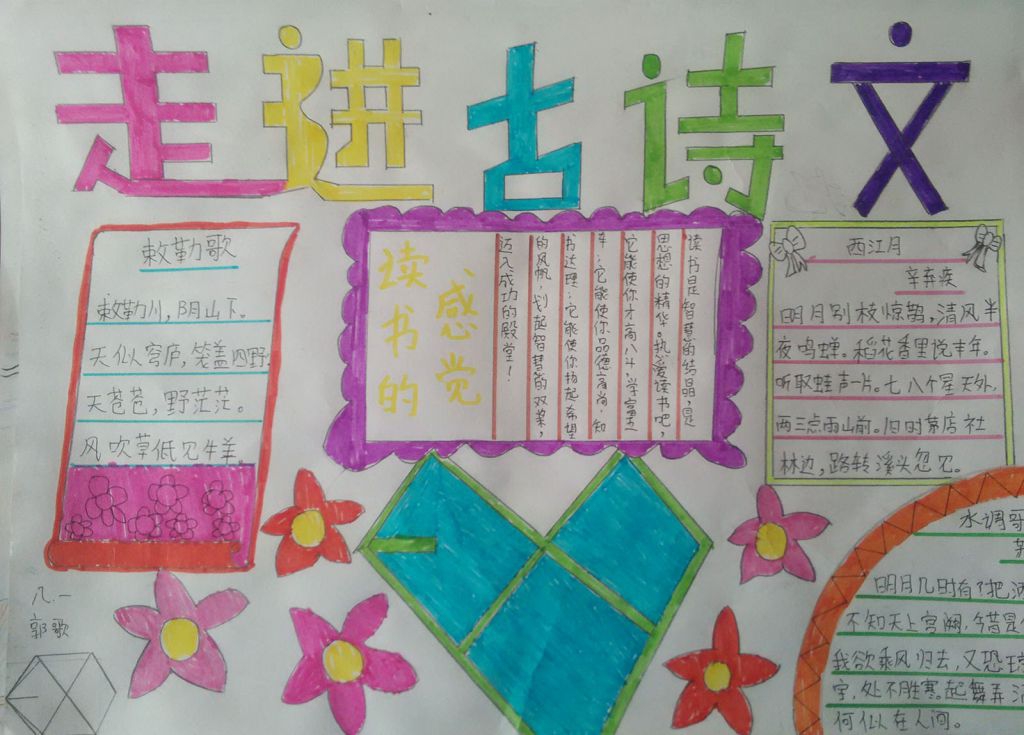 走进古诗文
敕勒歌
敕勒川,阴山下。
天似穹庐,笼盖四野。
天苍苍,野茫茫。
风吹草低见牛羊
读书的
感觉
读书是智慧的结晶,是
思想的精华。热爱读书吧,
它能使你才高八斗,学富五
车;它能使你品德高尚,知
书达理;它能使你扬起希望
的风帆,划起智慧的双桨,
迈入成功的殿堂!
西江月
辛弃疾
明月别枝惊鹊,清风半
夜鸣蝉。稻花香里说丰年。
听取蛙声一片。七八个星天外,
两三点雨山前。旧时茅店社
林边,路转溪头忽见。
水调歌
明月几时有?把酒
不知天上宫阙,
我欲乘风归去,又恐琼
宇,处不胜寒。起舞弄
何似在人间。
八.一
郭歌